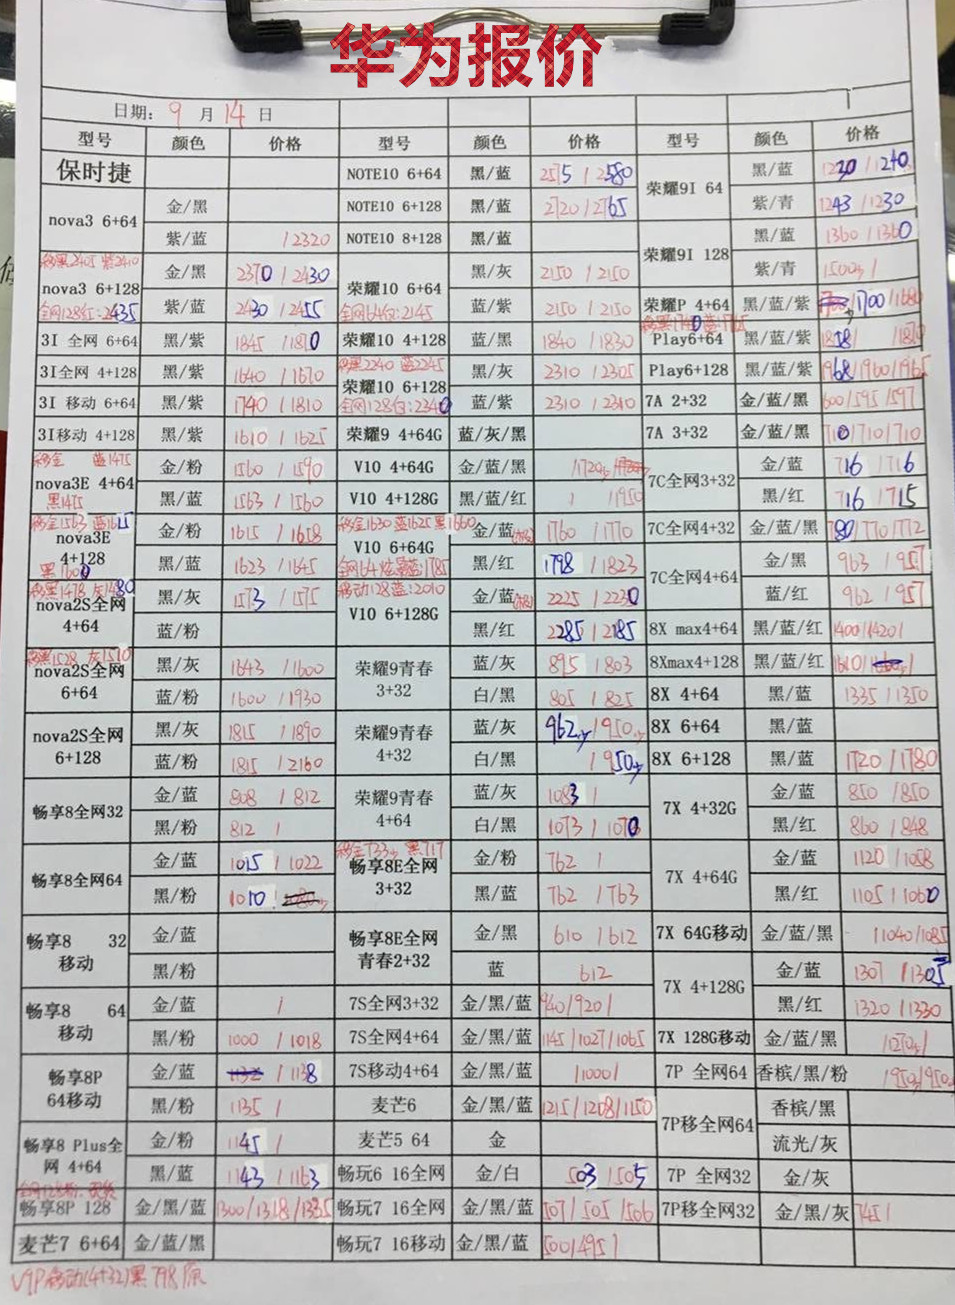 华为报价
日期: 9 月 14 日
型号 颜色 价格 型号 颜色 价格 型号 颜色 价格
保时捷 NOTE10 6+64 黑/蓝 2575 / 2580 荣耀9I 64 黑/蓝 1220 / 1240
nova3 6+64 金/黑 NOTE10 6+128 黑/蓝 2720 / 2765 紫/青 1243 / 1230
紫/蓝 / 2320 NOTE10 8+128 黑/蓝 荣耀9I 128 黑/蓝 1360 / 1360
移黑2405 紫2410
nova3 6+128 金/黑 2370 / 2430 荣耀10 6+64 黑/灰 2150 / 2150 紫/青 1500 /
全网128红:2435 紫/蓝 2430 / 2455 全网64白:2145 蓝/紫 2150 / 2150 荣耀P 4+64 黑/蓝/紫 /1700 /1680
3I 全网 6+64 黑/紫 1845 / 1870 荣耀10 4+128 蓝/黑 1840 / 1830 Play6+64 黑/蓝/紫
3I全网 4+128 黑/紫 1640 / 1670 移黑2240 蓝2245 荣耀10 6+128 黑/灰 2310 / 2305 Play6+128 黑/蓝/紫 1968/1960/1965
3I 移动 6+64 黑/紫 1740 / 1810 全网128白:2340 蓝/紫 2310 / 2340 7A 2+32 金/蓝/黑 600/595/597
3I移动 4+128 黑/紫 1610 / 1625 荣耀9 4+64G 蓝/灰/黑 7A 3+32 金/蓝/黑 710/710/710
移金 蓝1475
nova3E 4+64 金/粉 1560 / 1590 V10 4+64G 金/蓝/黑 /1720 7C全网3+32 金/蓝 716 / 716
黑1475 黑/蓝 1563 / 1560 V10 4+128G 黑/蓝/红 / /1950 黑/红 716 / 715
移金1563 蓝1615 移金1630 蓝1625 黑1660
nova3E 4+128 金/粉 1615 / 1658 V10 6+64G 金/蓝 1760 / 1770 7C全网4+32 金/蓝/黑 780/770/772
黑1600 黑/蓝 1623 / 1645 黑/红 1798 / 1823 7C全网4+64 金/黑 963 / 957
移黑1478 灰1480 移动128蓝:2010
nova2S全网 4+64 黑/灰 1573 / 1575 V10 6+128G 金/蓝 2225 / 2230 蓝/红 962 / 957
蓝/粉 黑/红 2285 / 2185 8X max4+64 黑/蓝/红 1400/1420/
移黑1528 灰1510
nova2S全网 6+64 黑/灰 1643 / 1600 荣耀9青春 3+32 蓝/灰 895 / 803 8Xmax4+128 黑/蓝/红 1610/
蓝/粉 1600 / 1930 白/黑 805 / 825 8X 4+64 黑/蓝 1335 / 1350
nova2S全网 6+128 黑/灰 1815 / 1890 荣耀9青春 4+32 蓝/灰 962 / 950 8X 6+64 黑/蓝
蓝/粉 1815 / 2160 白/黑 / 950 8X 6+128 黑/蓝 1720 / 1780
畅享8全网32 金/蓝 808 / 812 荣耀9青春 4+64 蓝/灰 1083 / 7X 4+32G 金/蓝 850 / 850
黑/粉 812 / 白/黑 1073 / 1070 黑/红 860 / 848
移金733 黑717
畅享8全网64 金/蓝 1015 / 1022 畅享8E全网 3+32 金/粉 762 / 7X 4+64G 金/蓝 1120 / 1058
黑/粉 1010 黑/蓝 762 / 763 黑/红 1105 / 1060
畅享8 32 移动 金/蓝 畅享8E全网 青春2+32 金/黑 610 / 612 7X 64G移动 金/蓝/黑 /1040/1085
黑/粉 蓝 612 7X 4+128G 金/蓝 1307 / 1305
畅享8 64 移动 金/蓝 / 7S全网3+32 金/黑/蓝 940/920/ 黑/红 1320 / 1330
黑/粉 1000 / 1018 7S全网4+64 金/黑/蓝 1145/1027/1065 7X 128G移动 金/蓝/黑 /1270/
畅享8P 64移动 金/蓝 / 1138 7S移动4+64 金/黑/蓝 /1000/ 7P 全网64 香槟/黑/粉 1950/1950
黑/粉 1135 / 麦芒6 金/黑/蓝 1215/1208/1150 7P移全网64 香槟/黑
畅享8 Plus全网 4+64 金/粉 1145 / 麦芒5 64 金 流光/灰
黑/蓝 1143 / 1163 畅玩6 16全网 金/白 503 / 505 7P 全网32 金/灰
畅享8P 128 金/黑/蓝 1300/1318/1335 畅玩7 16全网 金/黑/蓝 507/505/506 7P移全网32 金/黑/灰 745/
麦芒7 6+64 金/蓝/黑 畅玩7 16移动 金/黑/蓝 500/495/
V9P移动(4+32)黑798原